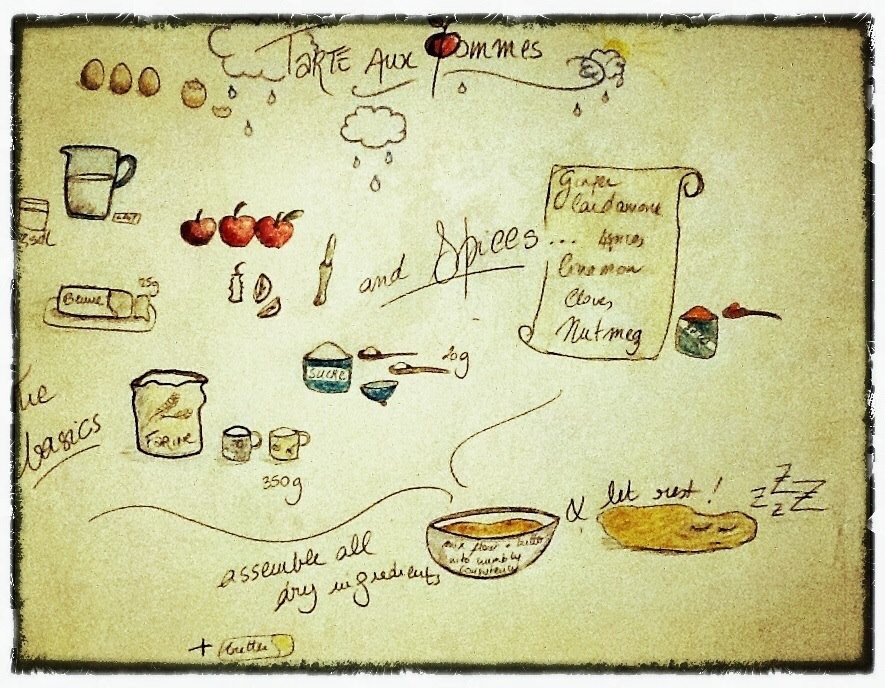 TARTE AUX Pommes
Ginger
Cardamone
and Spices ... 4spices
Cinnamon
Cloves
Nutmeg
Beurre
25g
SUCRE
20g
The
basics
FARINE
350g
& let rest!
Z Z Z Z
assemble all
dry ingredients
mix flour + butter
into crumbly
consistency
+ butter